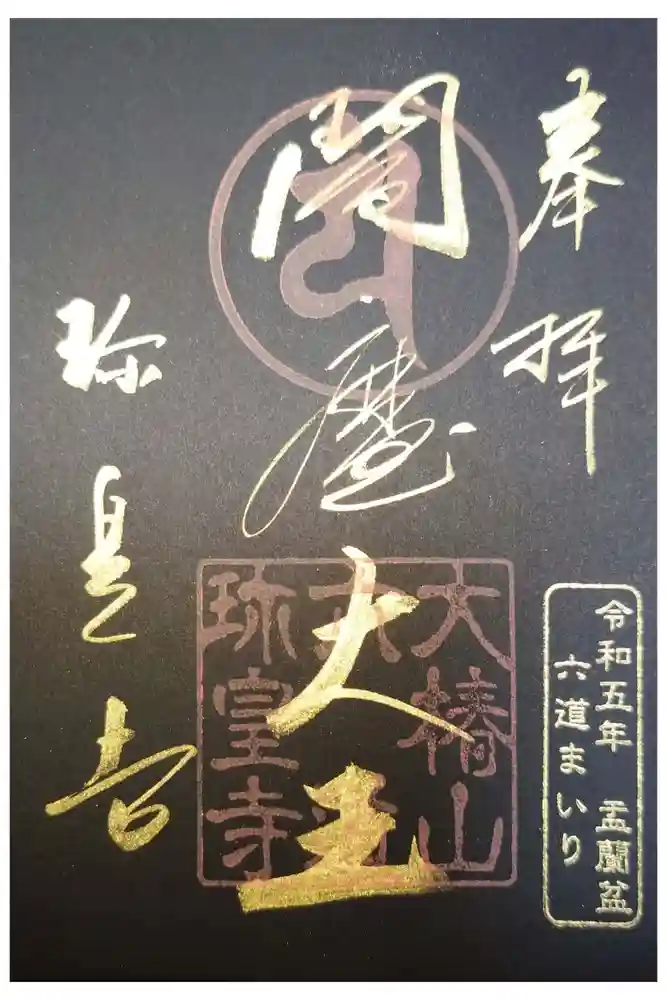 奉拝
令和五年 盂蘭盆
六道まいり
閻魔大王
大椿山
六道
珎皇寺
珎皇寺